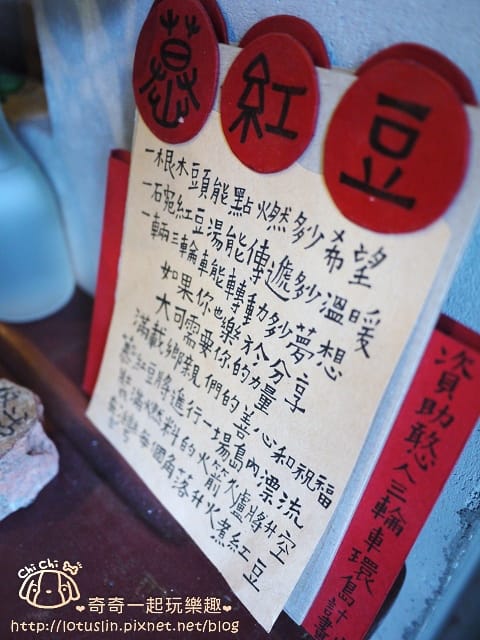 憨紅豆
一根木頭能點燃多少希望
一碗紅豆湯能傳遞多少溫暖
一輛三輪車能轉動多少夢想
如果你也樂於分享
大可需要你的力量
滿載鄉親們的善心和祝福
憨紅豆將進行一場島內漂流
滿燃料的火箭火爐將升空
每個角落升火煮紅豆
資助憨人三輪車環島計畫
Chi Chi
奇奇一起玩樂趣
http://lotuslin.pixnet.net/blog